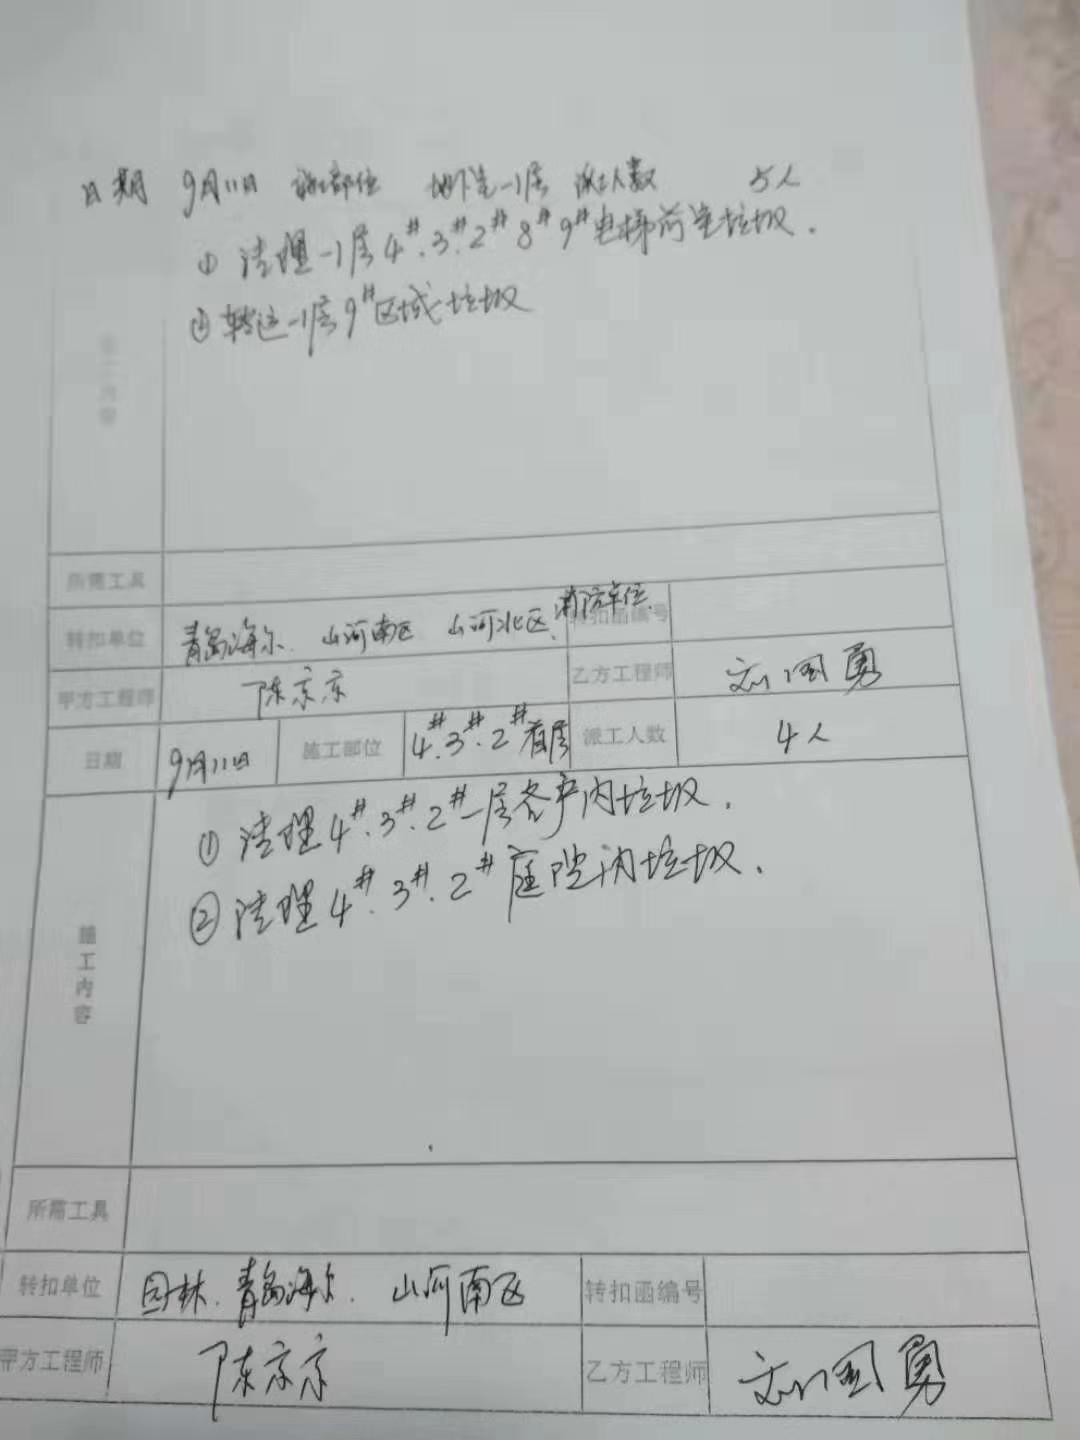 日期 9月11日 施工部位 地下室-1层 派工人数 5人
① 清理-1层4#.3#.2#8#9#电梯前室垃圾.
② 转运-1层9#区域垃圾
所需工具
转扣单位 青岛海尔. 山河南区 山河北区. 消防单位 转扣函编号
甲方工程师 陈京京 乙方工程师 刘国勇
日期 9月11日 施工部位 4#.3#.2#首层 派工人数 4人
① 清理4#.3#.2#一层各户内垃圾.
② 清理4#.3#.2#庭院内垃圾.
施工内容
所需工具
转扣单位 园林. 青岛海尔. 山河南区 转扣函编号
甲方工程师 陈京京 乙方工程师 刘国勇